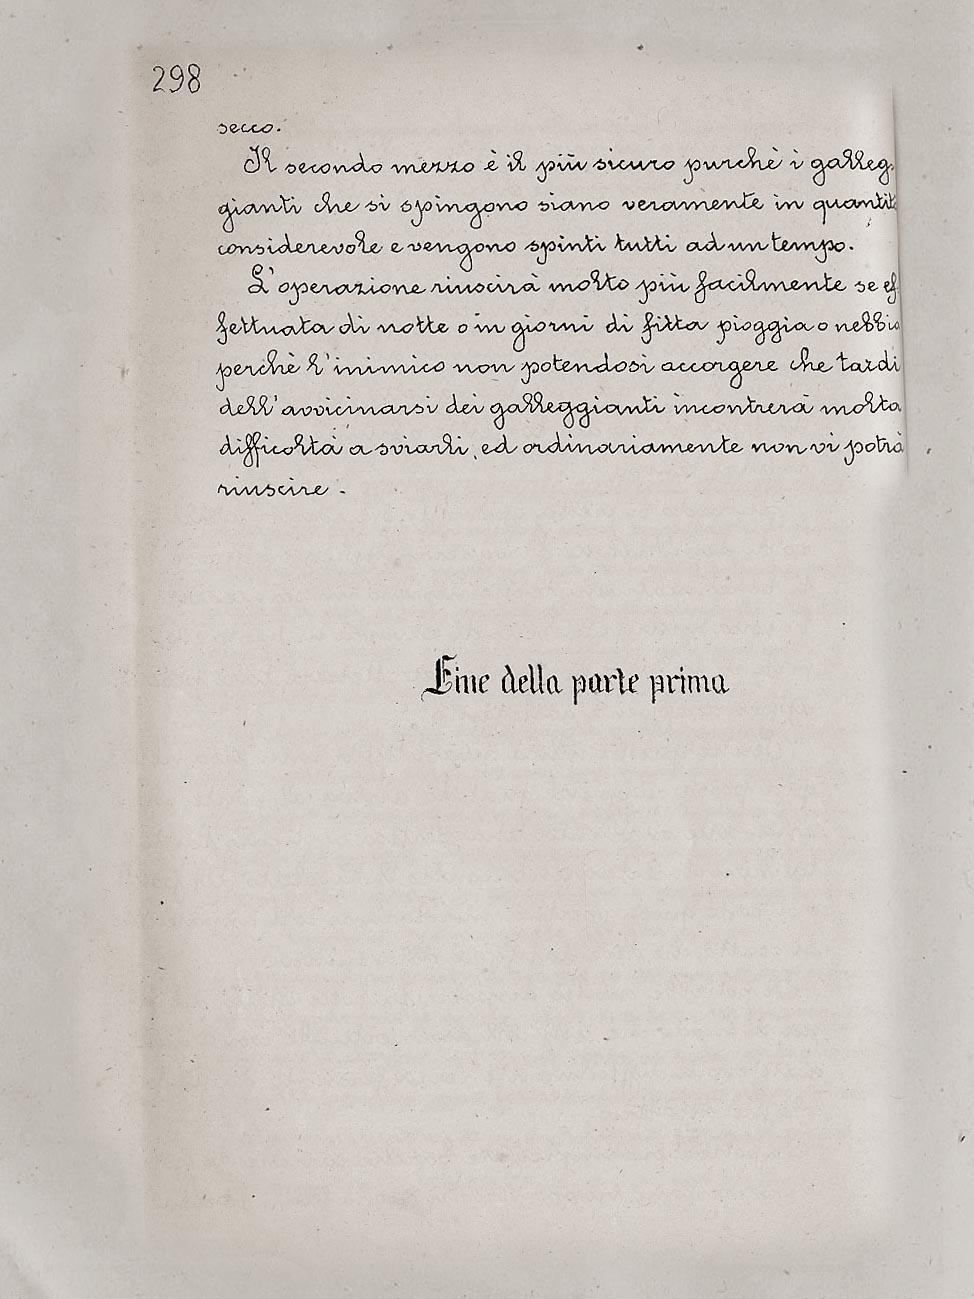 298
secco.
Il secondo mezzo è il più sicuro purchè i galleg-
gianti che si spingono siano veramente in quantità
considerevole e vengono spinti tutti ad un tempo.
L'operazione riuscirà molto più facilmente se ef-
fettuata di notte o in giorni di fitta pioggia o nebbia
perchè l'inimico non potendosi accorgere che tardi
dell'avvicinarsi dei galleggianti incontrerà molta
difficoltà a sviarli, ed ordinariamente non vi potrà
riuscire.
Fine della parte prima